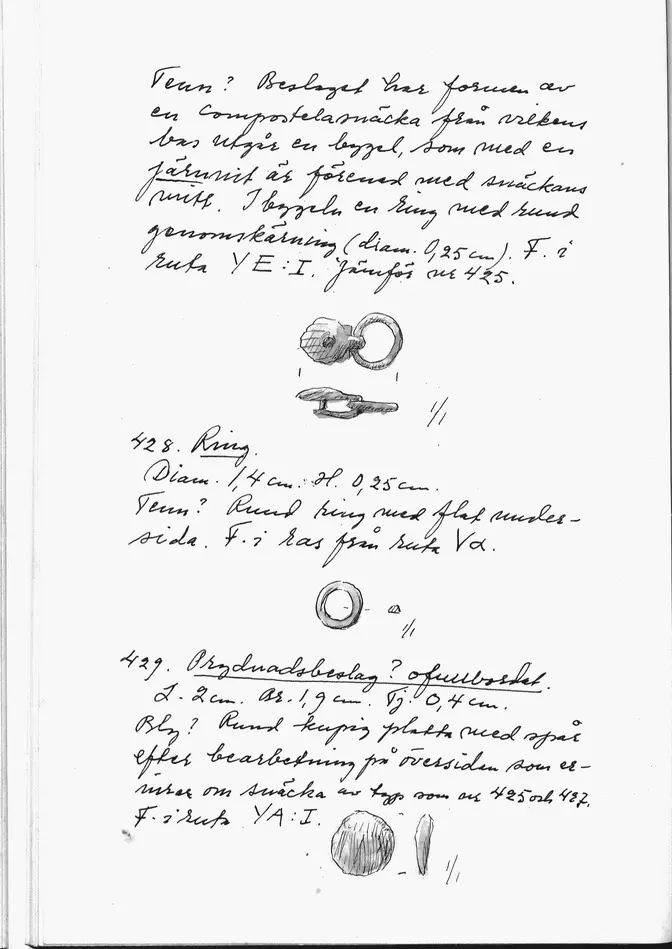 Tenn? Beslaget har formen av
en Compostelasnäcka från vilkens
bas utgår en bygel, som med en
järnnit är förenad med snäckans
mitt. I bygeln en ring med rund
genomskärning (diam. 0,25 cm). F. i
ruta YE:I. Jämför nr 425.
1/1
428. Ring.
Diam. 1,4 cm. H. 0,25 cm.
Tenn? Rund ring med flat under-
sida. F. i ras från ruta Vα.
1/1
429. Prydnadsbeslag? ofullbordat.
L. 2 cm. Br. 1,9 cm. Tj. 0,4 cm.
Bly? Rund kupig platta med spår
efter bearbetning på översidan som er-
inrar om snäcka av typ som nr 425 och 427.
F. i ruta YA:I.
1/1